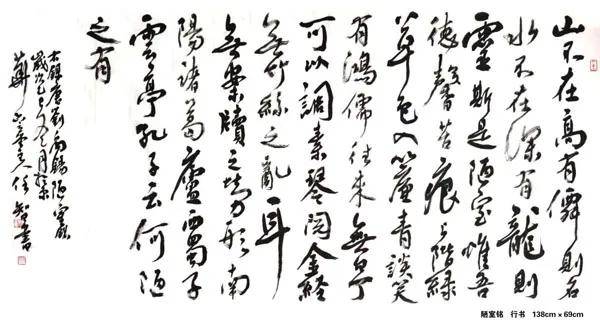 山不在高有僊則名
水不在深有龍則
靈斯是陋室惟吾
德馨苔痕上階綠
草色入簾青談笑
有鴻儒往來無白丁
可以調素琴閱金經
無竹絲之亂耳
無案牘之勞形南
陽諸葛廬西蜀子
雲亭孔子云何陋
之有
右錄唐劉禹錫陋室銘
歲次九月
主人任智書
陋室铭 行书 138cm × 69cm